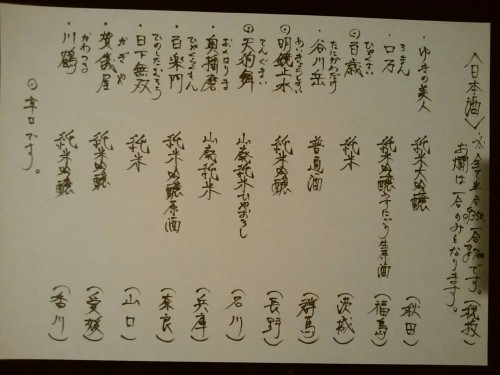 〈日本酒〉 ※ 一合 です。(税抜)
お燗は一合のみとなります。
・ゆきの美人 純米大吟醸 (秋田)
・ロ万 純米吟醸うすにごり生酒 (福島)
ろまん
◎百歳 純米 (茨城)
ひゃくさい
・谷川岳 普通酒 (群馬)
たにがわだけ
◎明鏡止水 純米吟醸 (長野)
めいきょうしすい
◎天狗舞 山廃純米ひやおろし (石川)
てんぐまい
・奥播磨 山廃純米 (兵庫)
おくはりま
・百楽門 純米吟醸原酒 (奈良)
ひゃくらくもん
・日下無双 純米 (山口)
ひのしたむそう
・賀儀屋 純米吟醸 (愛媛)
かぎや
・川鶴 純米吟醸 (香川)
かわつる
◎辛口です。